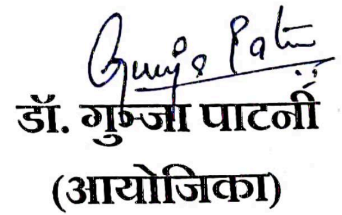 Gunja Patni
डॉ. गुन्जा पाटनी
(आयोजिका)